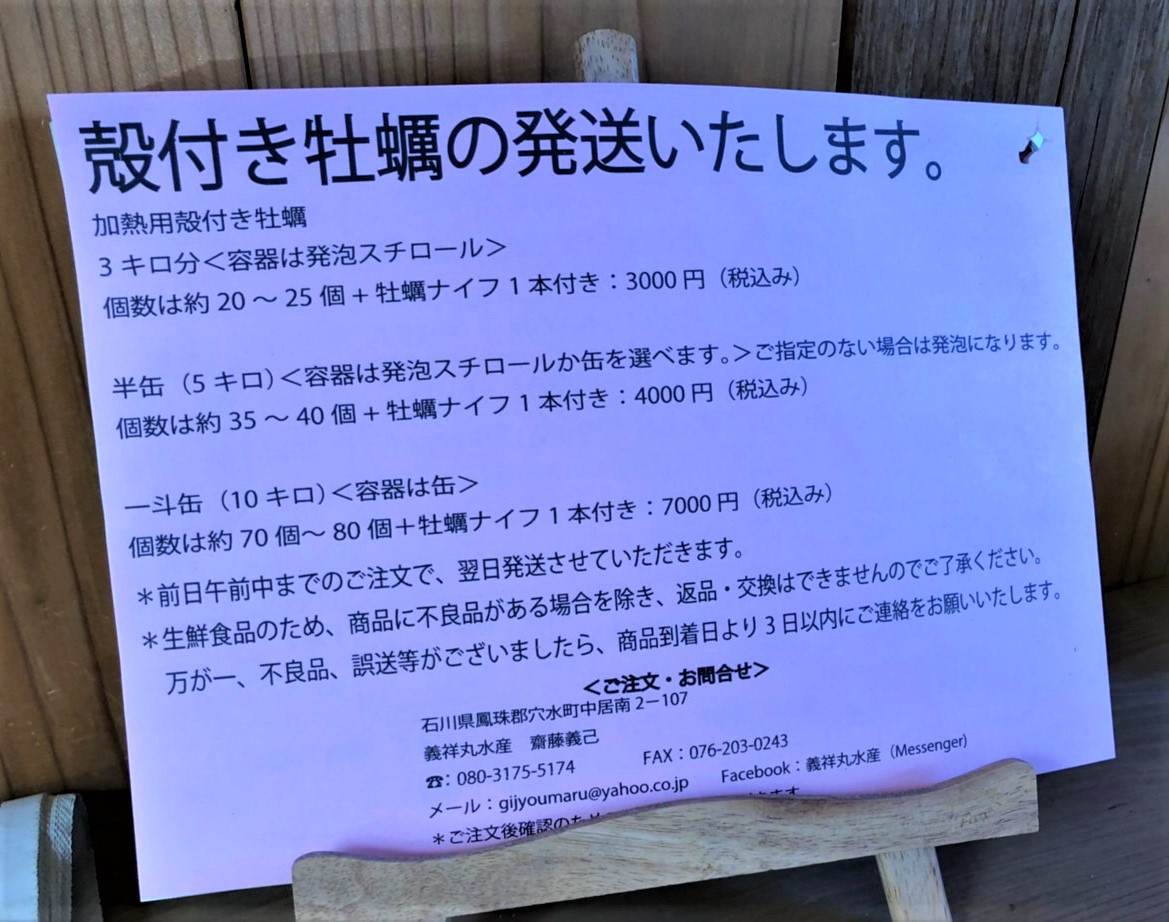 殻付き牡蠣の発送いたします。
加熱用殻付き牡蠣
3 キロ分＜容器は発泡スチロール＞
個数は約 20 ～ 25 個 + 牡蠣ナイフ 1 本付き：3000 円（税込み）
半缶（5 キロ）＜容器は発泡スチロールか缶を選べます。＞ご指定のない場合は発泡になります。
個数は約 35 ～ 40 個 + 牡蠣ナイフ 1 本付き：4000 円（税込み）
一斗缶（10 キロ）＜容器は缶＞
個数は約 70 個～ 80 個＋牡蠣ナイフ 1 本付き：7000 円（税込み）
＊前日午前中までのご注文で、翌日発送させていただきます。
＊生鮮食品のため、商品に不良品がある場合を除き、返品・交換はできませんのでご了承ください。
万が一、不良品、誤送等がございましたら、商品到着日より 3 日以内にご連絡をお願いいたします。
＜ご注文・お問合せ＞
石川県鳳珠郡穴水町中居南 2－107
義祥丸水産　齋藤義己
☎：080-3175-5174　FAX：076-203-0243
メール：gijyoumaru@yahoo.co.jp　Facebook：義祥丸水産（Messenger)
＊ご注文後確認のため